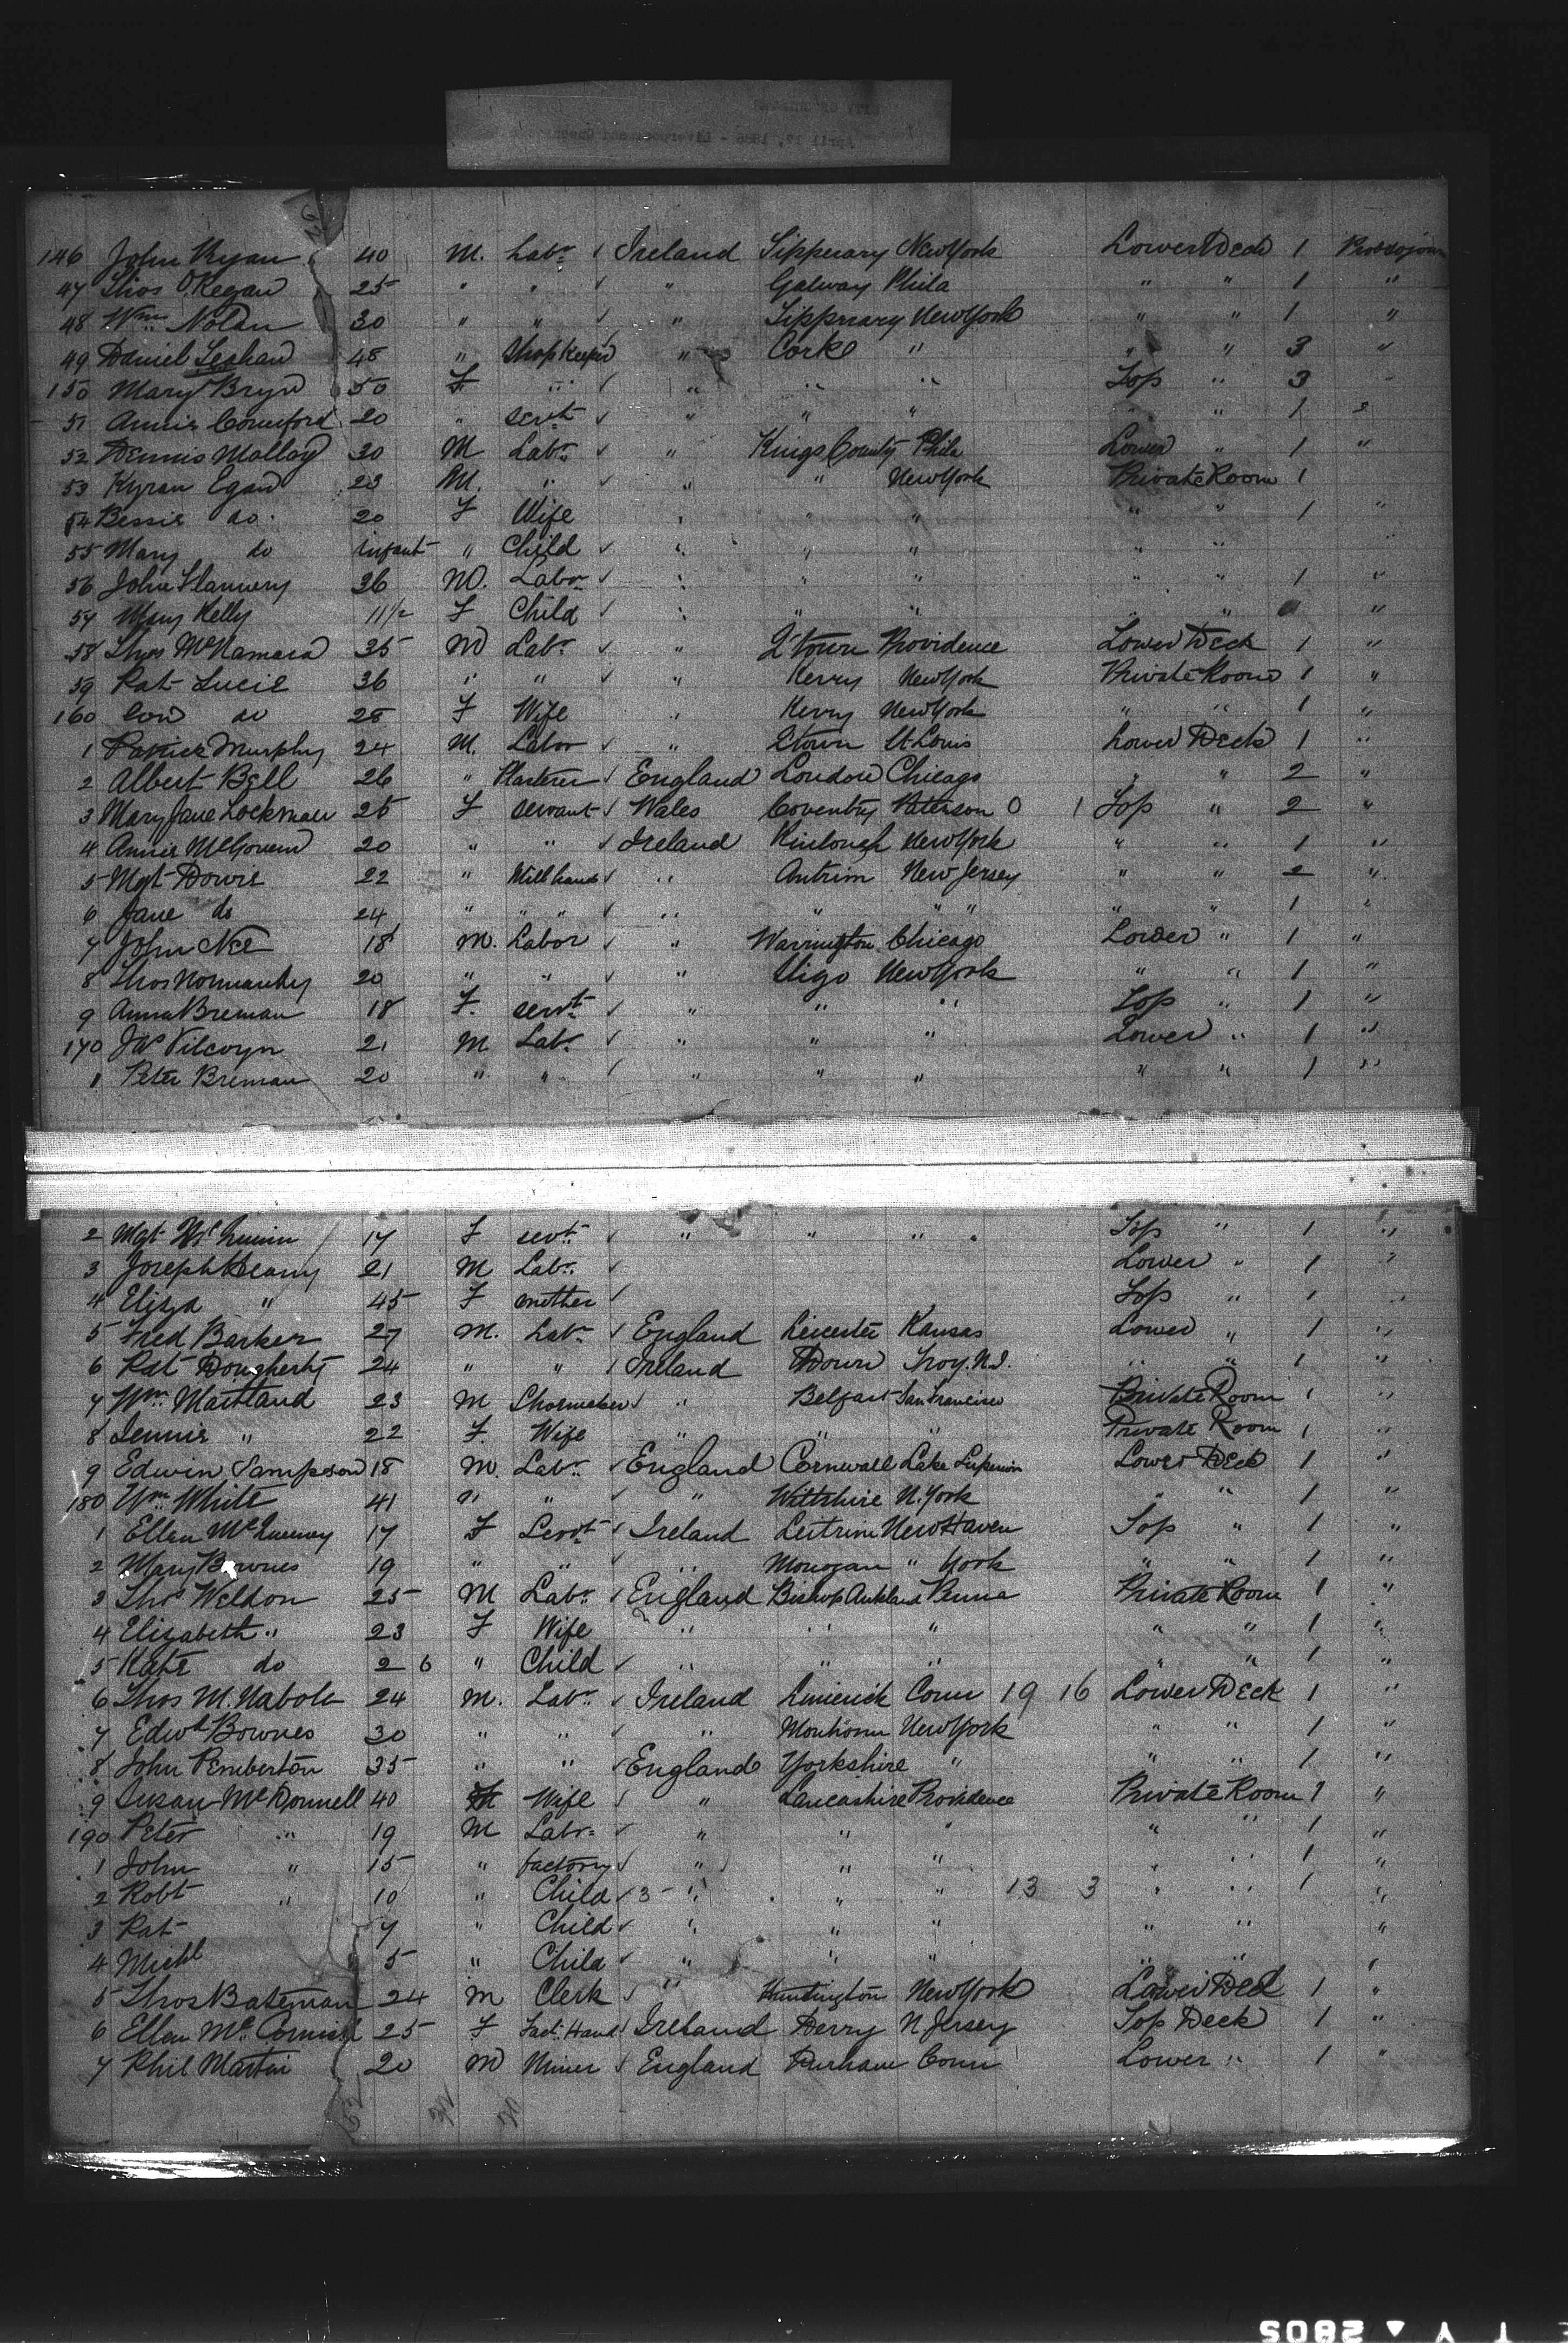 146 John Ryan 40 M. Labr Ireland Tipperary New York Lower Deck 1
47 Thos O'Regan 25 " " " Galway Phila " " 1 "
48 Wm Nolan 30 " " " Tipperary New York " " 1 "
49 Daniel 48 " Shop Keeper " Corke " " " 3 "
150 Mary Bryn 50 F " " " " Top " 3 "
51 Annie Comeford 20 " servt " " " " " 1 "
52 Dennis Malloy 30 M Labr " Kings County Phila Lower " 1 "
53 Kyran Egan 23 M. " " " New York Private Room 1
54 Bessie do 20 F Wife " " " " " 1 "
55 Mary do infant " Child " " " " " "
56 John Flannery 36 M. Labr " " " " " 1 "
57 Mary Kelly 11 1/2 F Child " " " " " "
58 Thos McNamara 35 M Labr " Q'town Providence Lower Deck 1 "
59 Pat Lucie 36 " " " Kerry New York Private Room 1 "
160 do 28 F Wife " Kerry New York " " 1 "
1 Patrick Murphy 24 M. Labor " Qtown St Louis Lower Deck 1 "
2 Albert Bell 26 " Plasterer England London Chicago " " 2 "
3 Mary Jane Lockman 25 F servant Wales Coventry Paterson 0 1 Top " 2 "
4 Annie McGovern 20 " " Ireland Kinlough New York " " 1 "
5 Mgt Dowie 22 " Mill hand " Antrim New Jersey " " 2 "
6 Jane do 24 " " " " " " " " " 1 "
7 John Nee 18 M. Labor " Warrington Chicago Lower " 1 "
8 Thos Normanby 20 " " " Sligo New York " " 1 "
9 Anna Brennan 18 F. servt " " " Top " 1 "
170 Jas 21 M Labr " " " Lower " 1 "
1 Peter Brennan 20 " " " " " " " 1 "
2 Mgt 17 F servt " " " " Top " 1 "
3 Joseph Heany 21 M Labr Lower " 1 "
4 Eliza " 45 F mother Top " 1 "
5 Fred Barker 27 M. Labr England Leicester Kansas Lower " 1 "
6 Pat Dougherty 24 " " Ireland Down Troy. N.J. " " 1 "
7 Wm Maitland 23 M Shoemaker " Belfast San Francisco Private Room 1 "
8 Jennie " 22 F. Wife " " " Private Room 1 "
9 Edwin Sampson 18 M. Labr England Cornwall Lake Superior Lower Deck 1 "
180 Wm White 41 " " " Wiltshire N. York " " 1 "
1 Ellen 17 F Servt Ireland Leitrim New Haven Top " 1 "
2 Mary Bownes 19 " " " Monogan " York " " 1 "
3 Thos Weldon 25 M Labr England Bishop Aukland Penna Private Room 1 "
4 Elizabeth " 23 F Wife " " " " " 1 "
5 Kate do 2 6 " Child " " " " " 1 "
6 Thos M. Nabole 24 M. Labr Ireland Limerick Conn 19 16 Lower Deck 1 "
7 Edwd Bownes 30 " " " New York " " 1 "
8 John Pemberton 35 " " England Yorkshire " " " 1 "
9 Susan McDonnell 40 Wife " Lancashire Providence Private Room 1 "
190 Peter " 19 M Labr " " " " " 1 "
1 John " 15 " factory " " " " " 1 "
2 Robt " 10 " Child 3 " " " 13 3 " " 1 "
3 Pat 7 " Child " " " " " "
4 Michl 5 " Child " " " " " "
5 Thos Bateman 24 M Clerk " Huntington New York Lower Deck 1 "
6 Ellen McCormick 25 F Fact. Hand Ireland Derry N Jersey Top Deck 1 "
7 Phil Martin 20 M Miner England Durham Conn Lower " 1 "